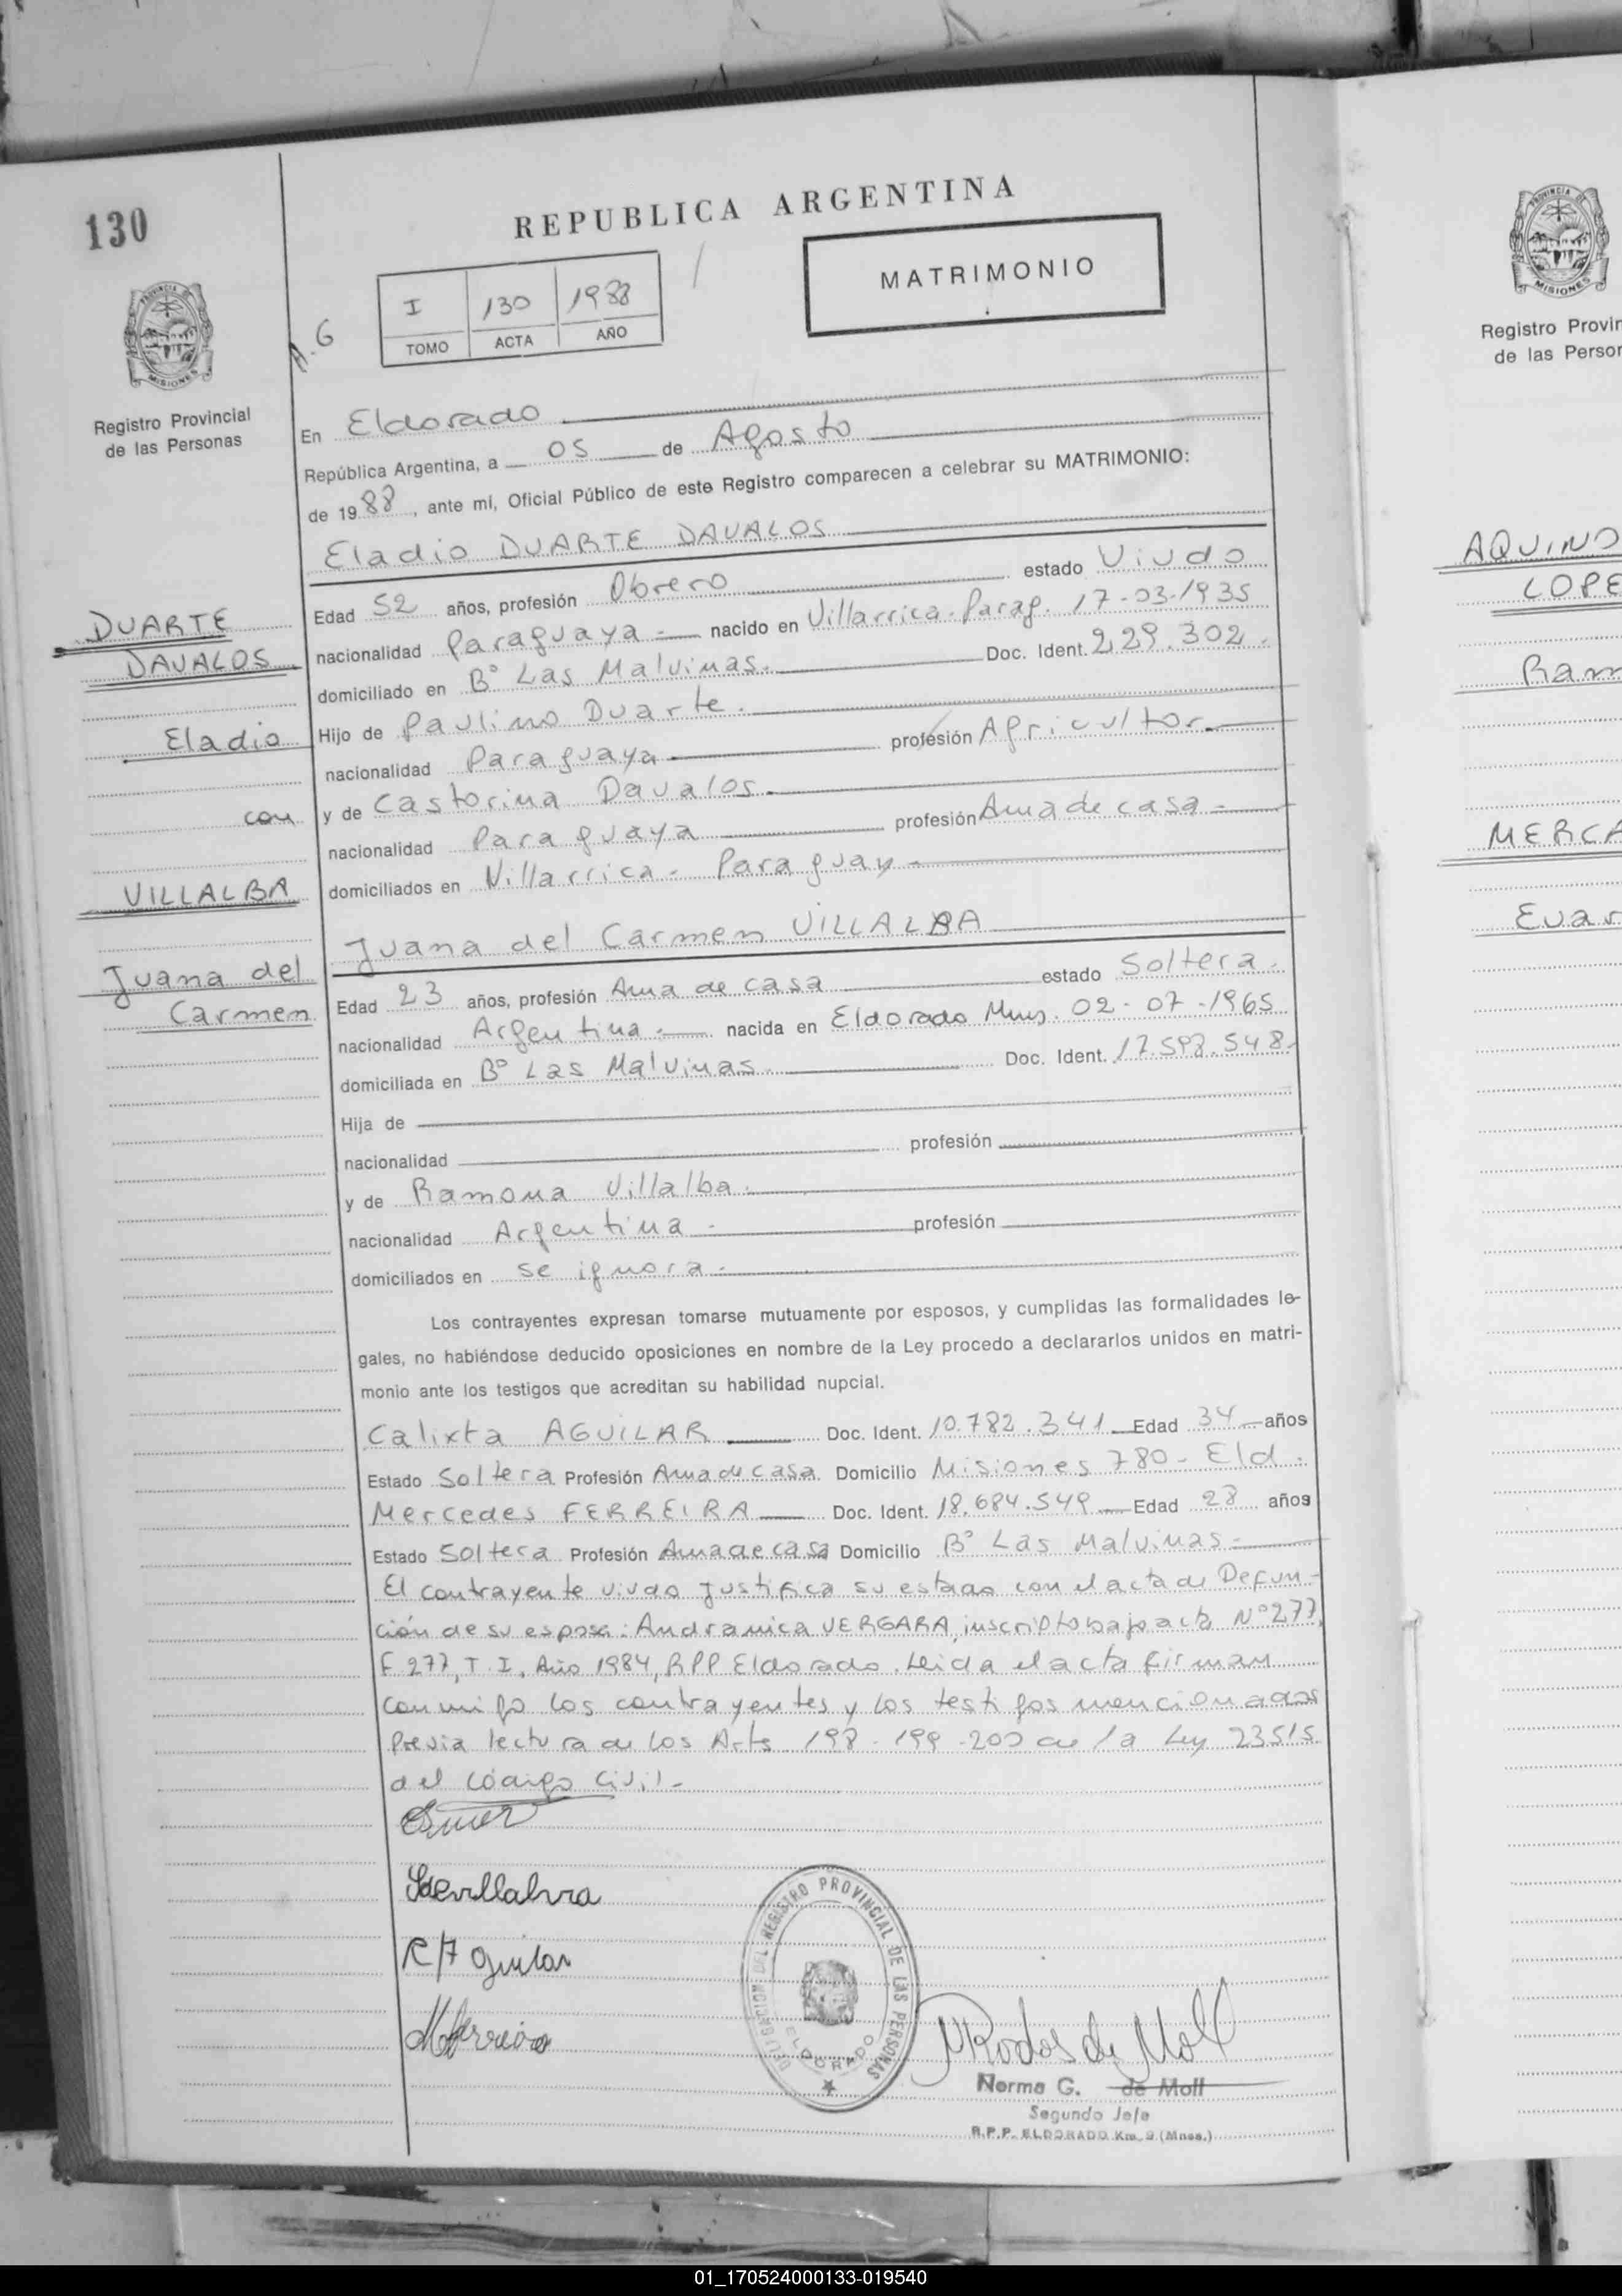 130
REPUBLICA ARGENTINA
I 130 1988
TOMO ACTA AÑO
MATRIMONIO
PROVINCIA DE
MISIONES
Registro Provincial
de las Personas
En Eldorado
República Argentina, a 05 de Agosto
de 1988, ante mí, Oficial Público de este Registro comparecen a celebrar su MATRIMONIO:
Eladio DUARTE DAVALOS
Edad 52 años, profesión Obrero estado Viudo
nacionalidad Paraguaya nacido en Villarrica. Parag. 17-03-1935
domiciliado en B° Las Malvinas. Doc. Ident. 229.302.
Hijo de Paulino Duarte.
nacionalidad Paraguaya profesión Agricultor
y de Castorina Davalos.
nacionalidad Paraguaya profesión Ama de casa
domiciliados en Villarrica - Paraguay
DUARTE
DAVALOS
Eladio
con
VILLALBA
Juana del
Carmen
Juana del Carmen VILLALBA
Edad 23 años, profesión Ama de casa estado Soltera.
nacionalidad Argentina. nacida en Eldorado Mnes. 02-07-1965
domiciliada en B° Las Malvinas. Doc. Ident. 17.598.548.
Hija de
nacionalidad profesión
y de Ramona Villalba.
nacionalidad Argentina profesión
domiciliados en se ignora.
Los contrayentes expresan tomarse mutuamente por esposos, y cumplidas las formalidades le-
gales, no habiéndose deducido oposiciones en nombre de la Ley procedo a declararlos unidos en matri-
monio ante los testigos que acreditan su habilidad nupcial.
Calixta AGUILAR Doc. Ident. 10.782.341 Edad 34 años
Estado Soltera Profesión Ama de casa Domicilio Misiones 780 - Eld.
Mercedes FERREIRA Doc. Ident. 18.684.549 Edad 28 años
Estado Soltera Profesión Ama de casa Domicilio B° Las Malvinas
El contrayente viudo justifica su estado con el acta de Defun-
ción de su esposa: Andramica VERGARA, inscripto bajo acta N° 277,
F 277, T. I, Año 1984, RPP Eldorado. Leida el acta firman
conmigo los contrayentes y los testigos mencionados
Previa lectura de los Arts 198 - 199 - 200 de la Ley 23515
del Código Civil
DELEGACION DEL REGISTRO PROVINCIAL DE LAS PERSONAS
ELDORADO
Norma G. de Moll
Segundo Jefe
R.P.P. ELDORADO Km. 9 (Mnes.)
PROVINCIA DE
MISIONES
Registro Provin
de las Person
AQUINO
LOPE
Ram
MERCA
Evar
01_170524000133-019540